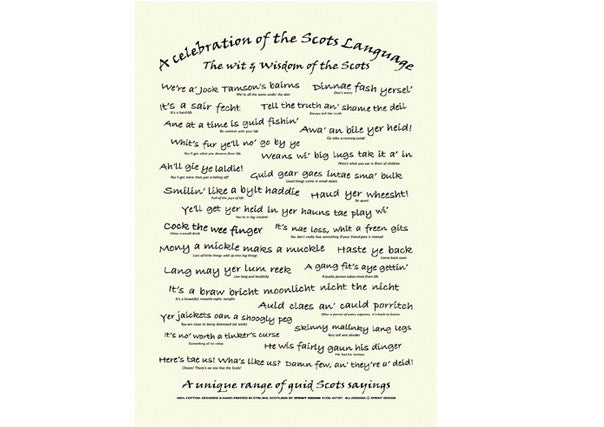 A celebration of the Scots Language
The Wit & Wisdom of the Scots
We're a' Jock Tamson's bairns Dinnae fash yersel'
We're all the same under the skin Don't worry
It's a sair fecht Tell the truth an' shame the deil
It's a hard life Always tell the truth
Ane at a time is guid fishin'
Be content with your life
Awa' an bile yer heid!
Go take a running jump!
Whit's fur ye'll no' go by ye
You'll get what you deserve from life
Weans wi' big lugs tak it a' in
Watch what you say in front of children
Ah'll gie ye laldie! Guid gear gaes intae sma' bulk
You'll get more than just a telling off! Good things come in small sizes
Smilin' like a bylt haddie Haud yer wheesht!
Full of the joys of life Be quiet!
Ye'll get yer heid in yer hauns tae play wi'
You're in big trouble!
Cock the wee finger It's nae loss, whit a freen gits
Have a small drink You don't really lose something if your friend gets it instead
Mony a mickle maks a muckle Haste ye back
Lots of little things add up into big things Come back soon
Lang may yer lum reek A gang fit's aye gettin'
Live long and healthily A pushy person takes most from life
It's a braw bricht moonlicht nicht the nicht
It's a beautiful, moonlit night, tonight
Auld claes an' cauld porritch
After a period of extra expense, it's back to basics
Yer jaickets oan a shoogly peg
You are close to being dismissed (at work)
Skinny mallinky lang legs
Very tall and slender
It's no' worth a tinker's curse
Something of no value
He wis fairly gaun his dinger
He lost his temper
Here's tae us! Wha's like us? Damn few, an' they're a' deid!
Cheers! There's no one like the Scots!
A unique range of guid Scots sayings
100% COTTON, DESIGNED & HAND-PRINTED IN STIRLING, SCOTLAND BY SPRINT DESIGN ALL DESIGNS © SPRINT DESIGN